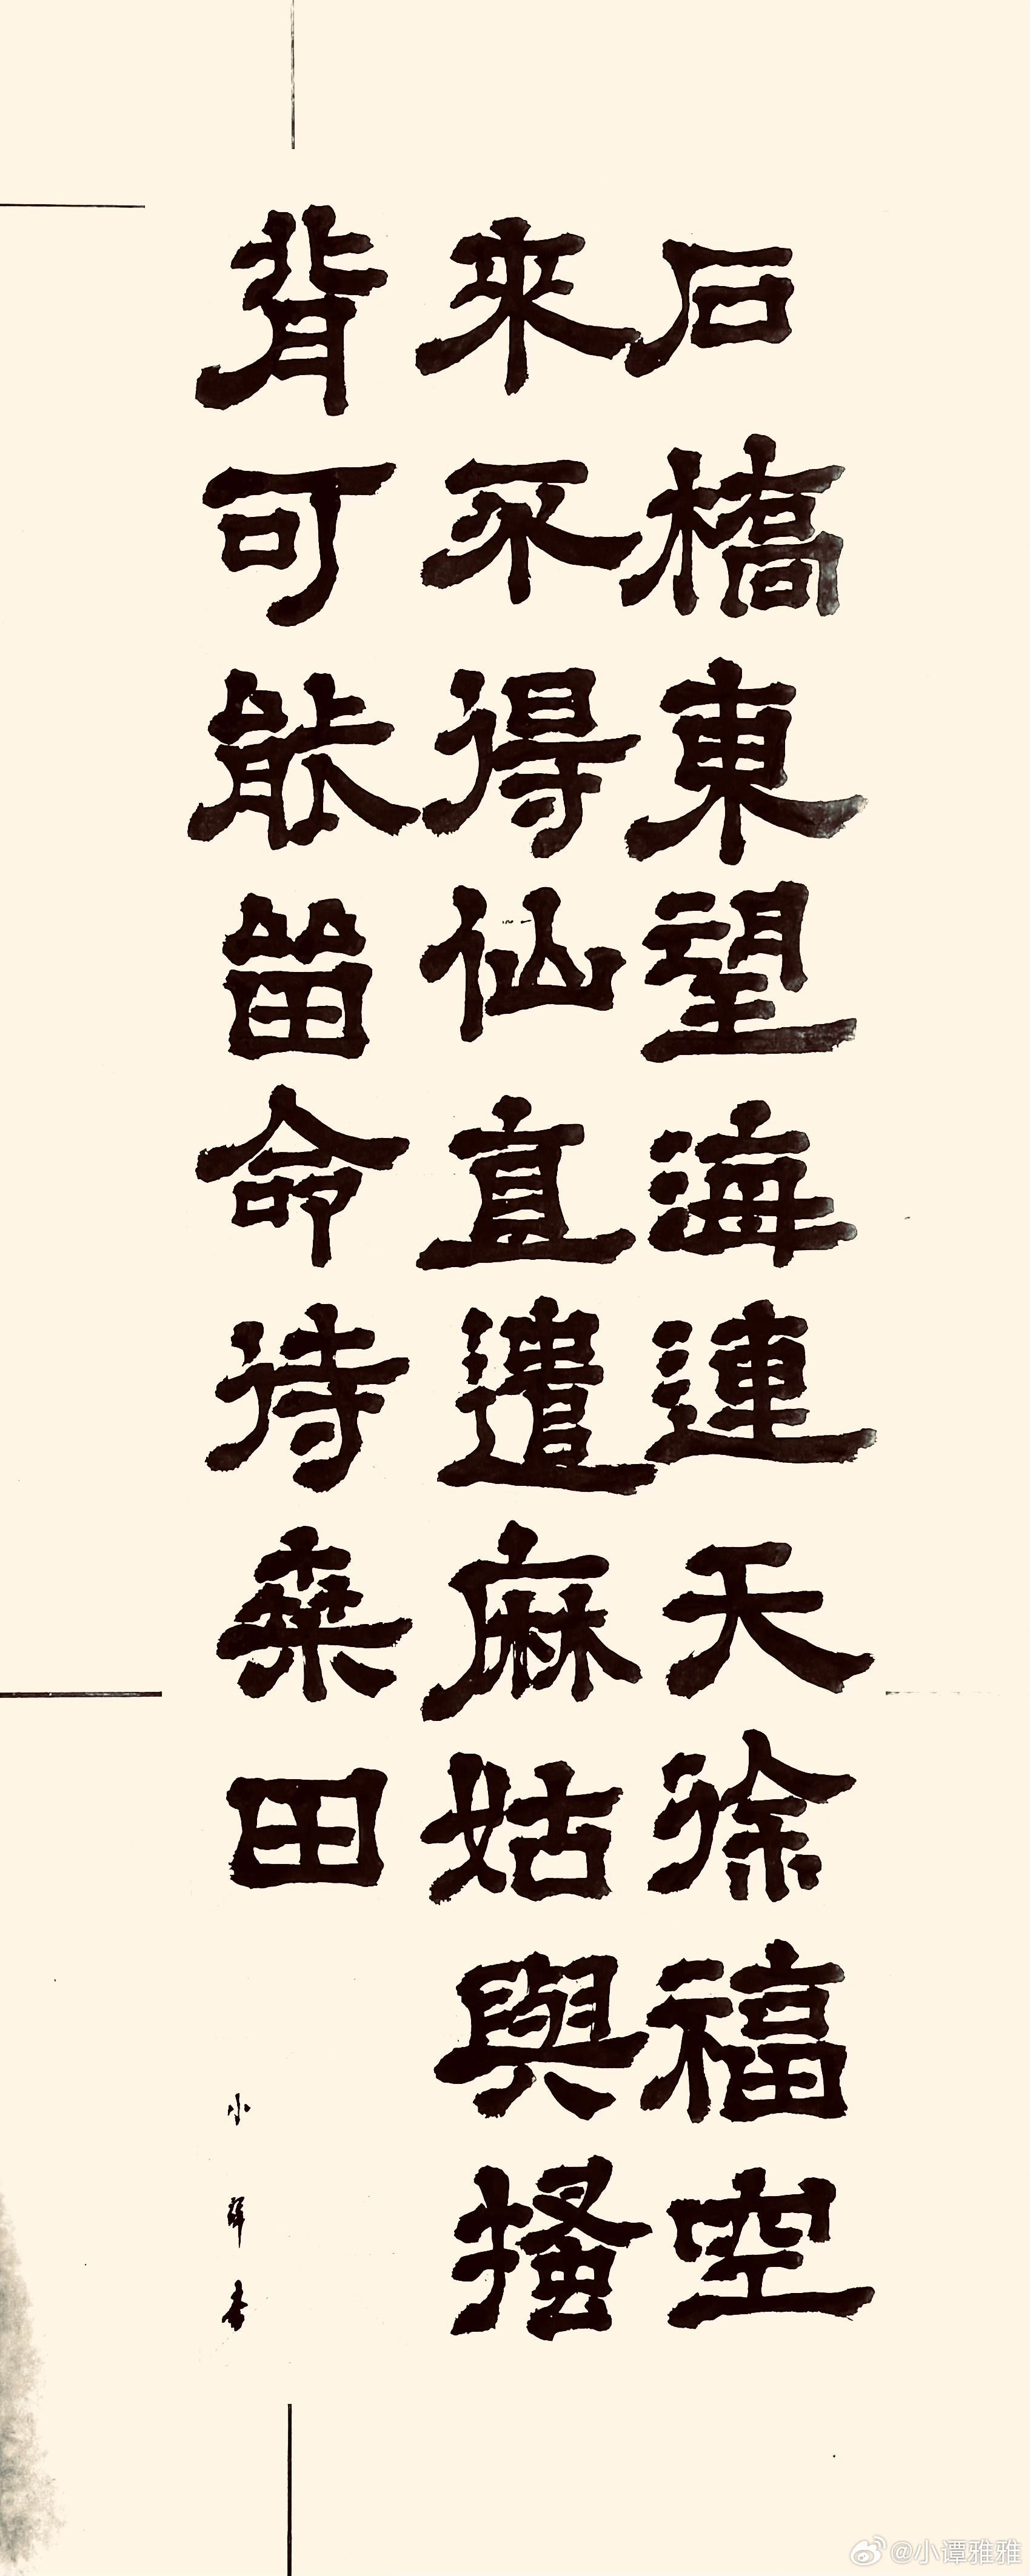 石橋東望海連天徐福空
來不得仙直遣麻姑與搔
背可能留命待桑田
小譚書
@小谭雅雅